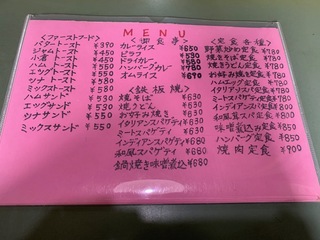 MENU
<ファーストフード>
バタートースト ¥390
ジャムトースト ¥430
小倉トースト ¥430
ハムトースト ¥550
エッグトースト ¥550
ツナトースト ¥550
ミックストースト ¥580
ハムサンド ¥550
エッグサンド ¥530
ツナサンド ¥550
ミックスサンド ¥550
<御食事>
カレーライス ¥650
ピラフ ¥530
ドライカレー ¥580
ハンバーグカレー ¥780
オムライス ¥670
<鉄板焼>
焼きそば ¥630
焼うどん ¥630
お好み焼き ¥630
イタリアンスパゲティ ¥630
ミートスパゲティ ¥630
インディアンスパゲティ ¥680
和風スパゲティ ¥680
鍋焼き味噌煮込 ¥680
<定食各種>
野菜炒め定食 ¥780
焼きそば定食 ¥780
焼きうどん定食 ¥780
お好み焼き定食 ¥780
エビフライ定食
イタリアンスパ定食 ¥780
ミートスパ定食 ¥780
インディアンスパ定食
和風スパ定食
味噌煮込み定食
ハンバーグ定食
焼肉定食 ¥900